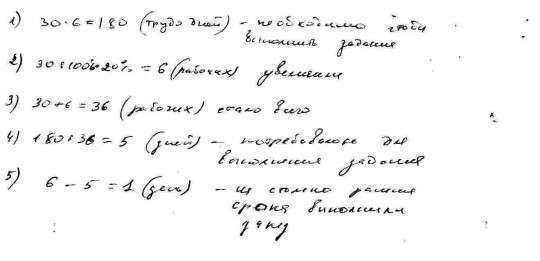 1) 30·6=180 (трудо дней) - необходимо чтобы
выполнить задание
2) 30:100%·20% = 6 (рабочих) увеличили
3) 30+6=36 (рабочих) стало всего
4) 180:36=5 (дней) - потребовалось для
выполнения задания
5) 6-5=1 (день) - на столько раньше
срока выполнили